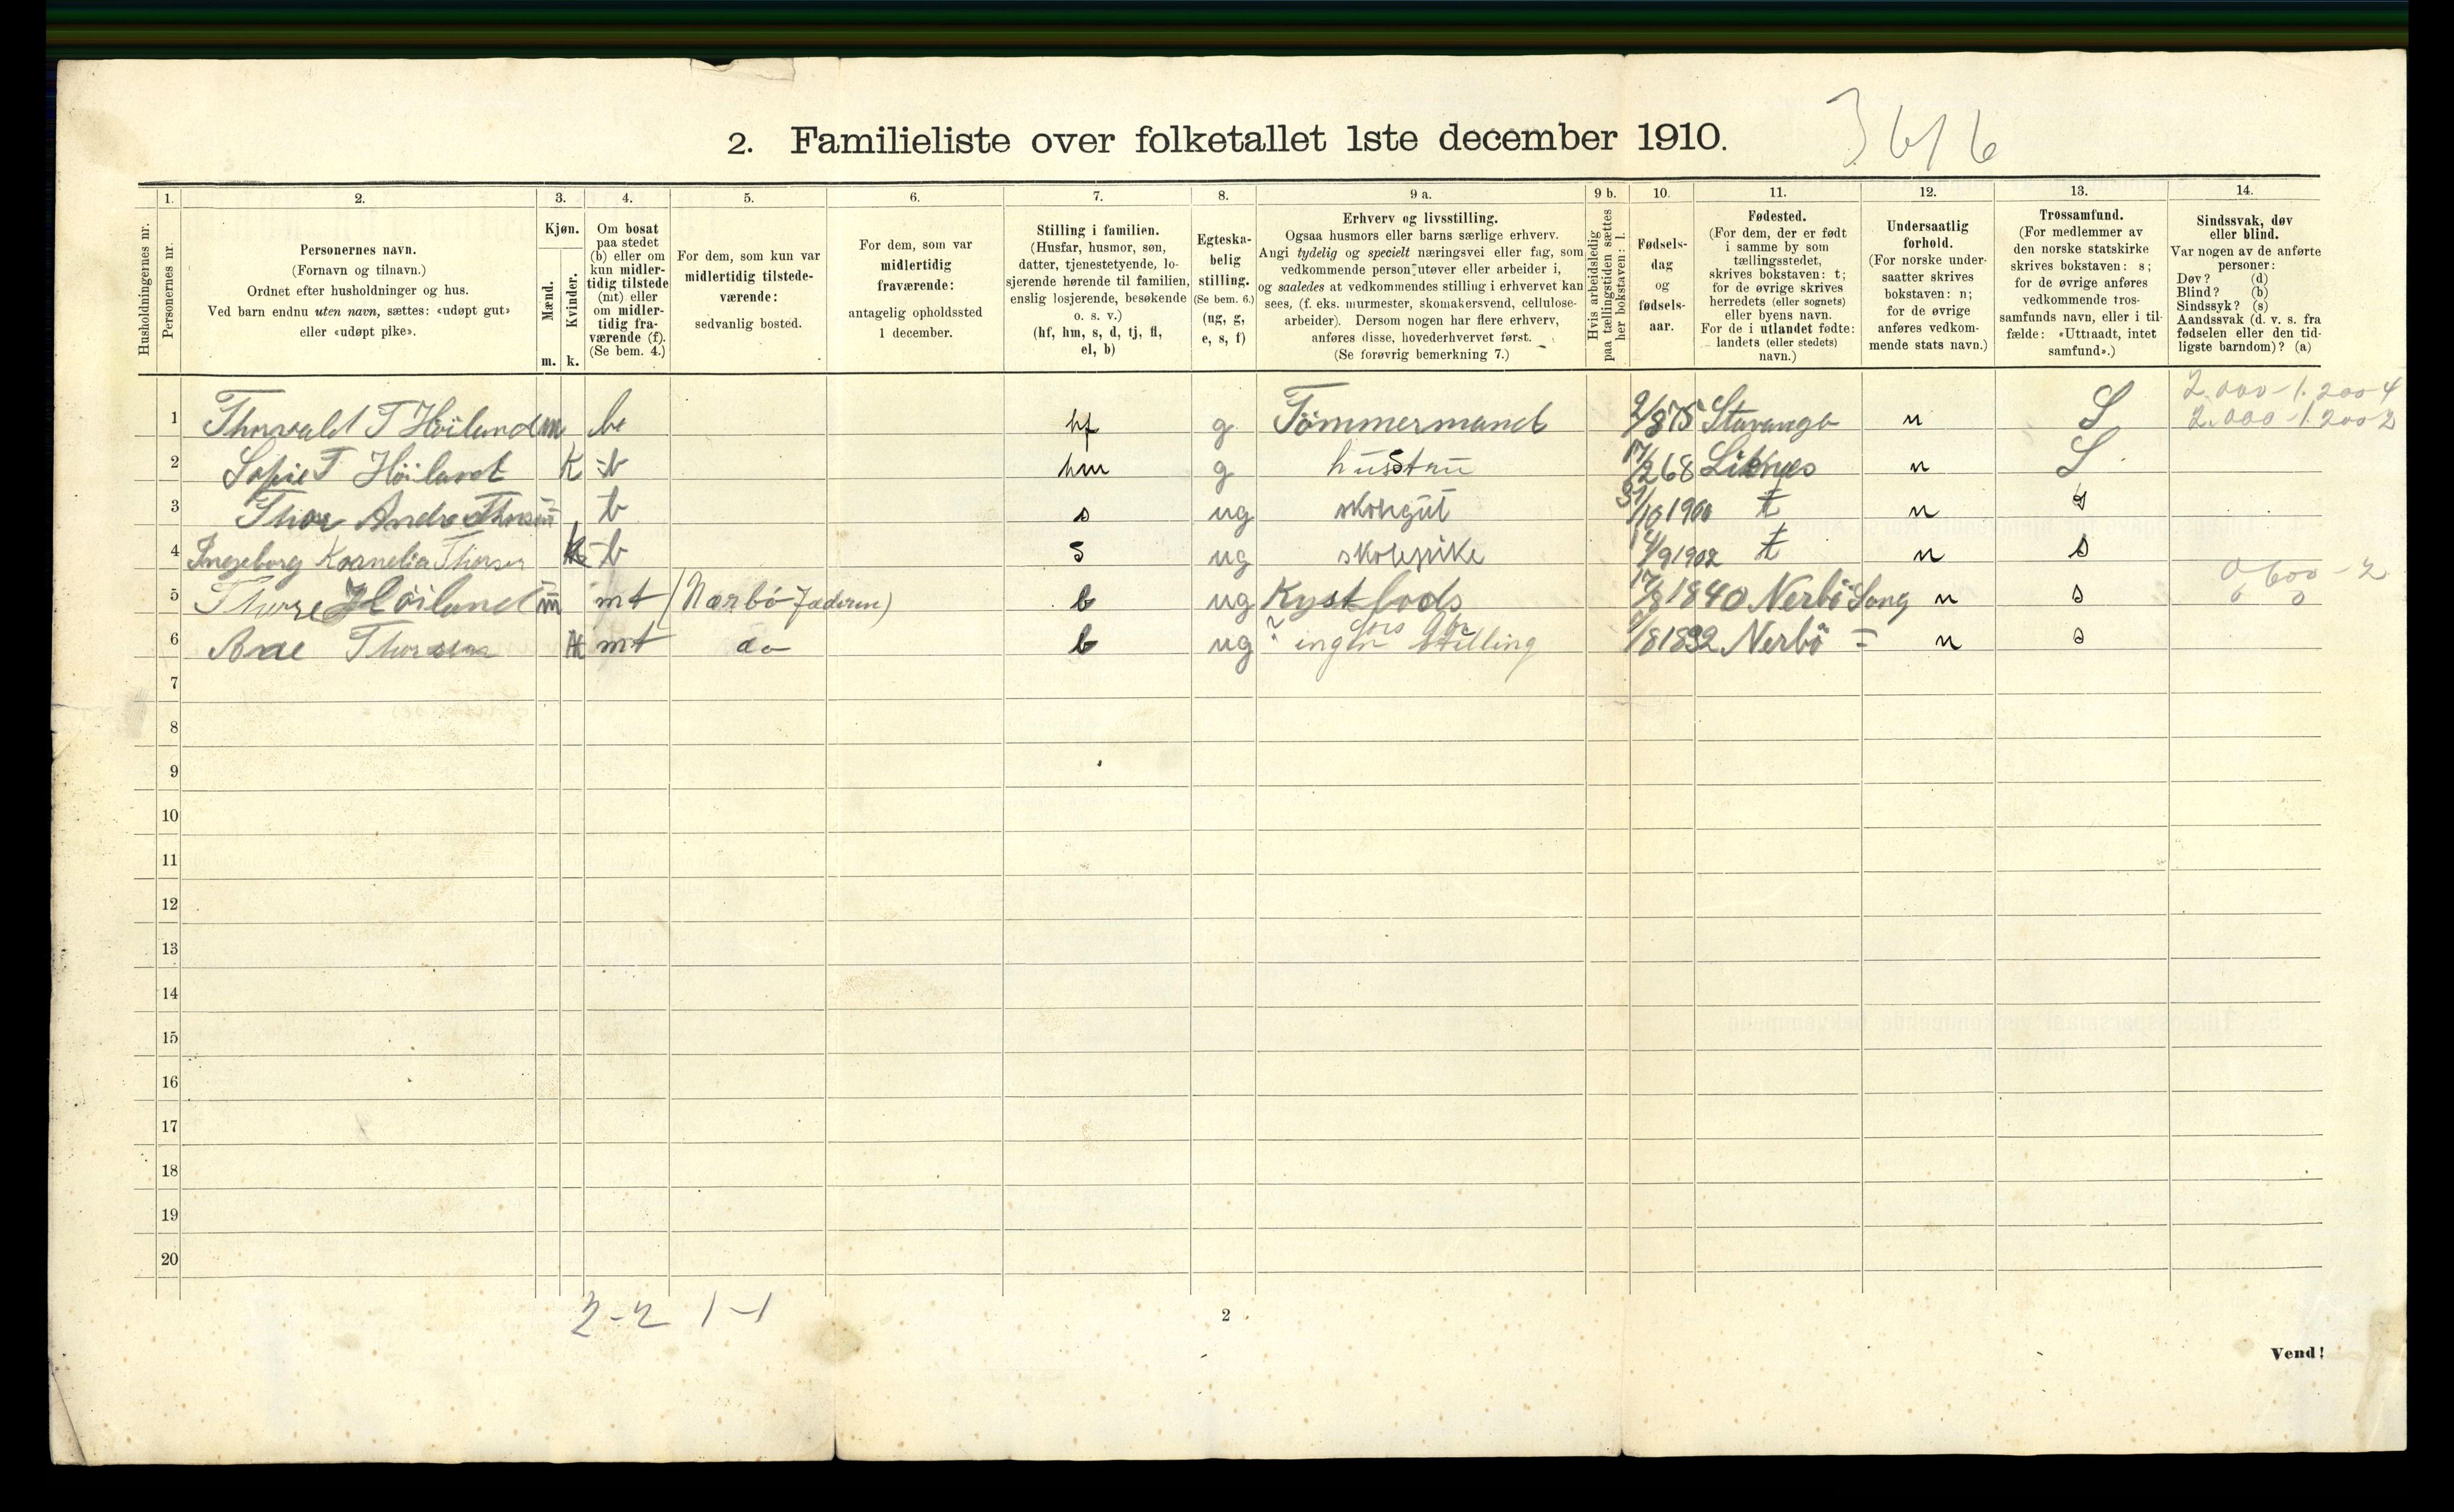 2. Familieliste over folketallet 1ste december 1910.
3 6/6
1. 2. 3. 4. 5. 6. 7. 8. 9 a. 9 b. 10. 11. 12. 13. 14.
Husholdningernes nr.
Personernes nr.
Personernes navn.
(Fornavn og tilnavn.)
Ordnet efter husholdninger og hus.
Ved barn endnu uten navn, sættes: «udøpt gut»
eller «udøpt pike».
Kjøn.
Mænd.
Kvinder.
m. k.
Om bosat
paa stedet
(b) eller om
kun midler-
tidig tilstede
(mt) eller
om midler-
tidig fra-
værende (f).
(Se bem. 4.)
For dem, som kun var
midlertidig tilstede-
værende:
sedvanlig bosted.
For dem, som var
midlertidig
fraværende:
antagelig opholdssted
1 december.
Stilling i familien.
(Husfar, husmor, søn,
datter, tjenestetyende, lo-
sjerende hørende til familien,
enslig losjerende, besøkende
o. s. v.)
(hf, hm, s, d, tj, fl,
el, b)
Egteska-
belig
stilling.
(Se bem. 6.)
(ug, g,
e, s, f)
Erhverv og livsstilling.
Ogsaa husmors eller barns særlige erhverv.
Angi tydelig og specielt næringsvei eller fag, som
vedkommende person utøver eller arbeider i,
og saaledes at vedkommendes stilling i erhvervet kan
sees, (f. eks. murmester, skomakersvend, cellulose-
arbeider). Dersom nogen har flere erhverv,
anføres disse, hovederhvervet først.
(Se forøvrig bemerkning 7.)
Hvis arbeidsledig
paa tællingstiden sættes
her bokstaven: l.
Fødsels-
dag
og
fødsels-
aar.
Fødested.
(For dem, der er født
i samme by som
tællingsstedet,
skrives bokstaven: t;
for de øvrige skrives
herredets (eller sognets)
eller byens navn.
For de i utlandet fødte:
landets (eller stedets)
navn.)
Undersaatlig
forhold.
(For norske under-
saatter skrives
bokstaven: n;
for de øvrige
anføres vedkom-
mende stats navn.)
Trossamfund.
(For medlemmer av
den norske statskirke
skrives bokstaven: s;
for de øvrige anføres
vedkommende tros-
samfunds navn, eller i til-
fælde: «Uttraadt, intet
samfund».)
Sindssvak, døv
eller blind.
Var nogen av de anførte
personer:
Døv? (d)
Blind? (b)
Sindssyk? (s)
Aandssvak (d. v. s. fra
fødselen eller den tid-
ligste barndom)? (a)
2.000-1.2004
1 Thorvald T Höiland m b hf g Tömmermand 2/8 75 Stavanger n S 2.000-1.2002
2 Sofie T Höiland K b hm g hustru 17/2 68 Liknes n S
3 Thor Andr Thorsen m b s ug skolegut 31/10 1900 t n s
4 Ingeborg Kornelia Thorsen k b s ug skolepike 14/9 1902 t n s
0 600-2
5 Thorre Höiland m mt (Nærbö Jæderen) b ug Kyst lods 17/8 1840 Nerbö Song n s 0 0
6 Ane Thorsen K mt do b ug ingen stilling /8 1892 Nerbö = n s
7
8
9
10
11
12
13
14
15
16
17
18
19
20
2-2 1-1
2
Vend!